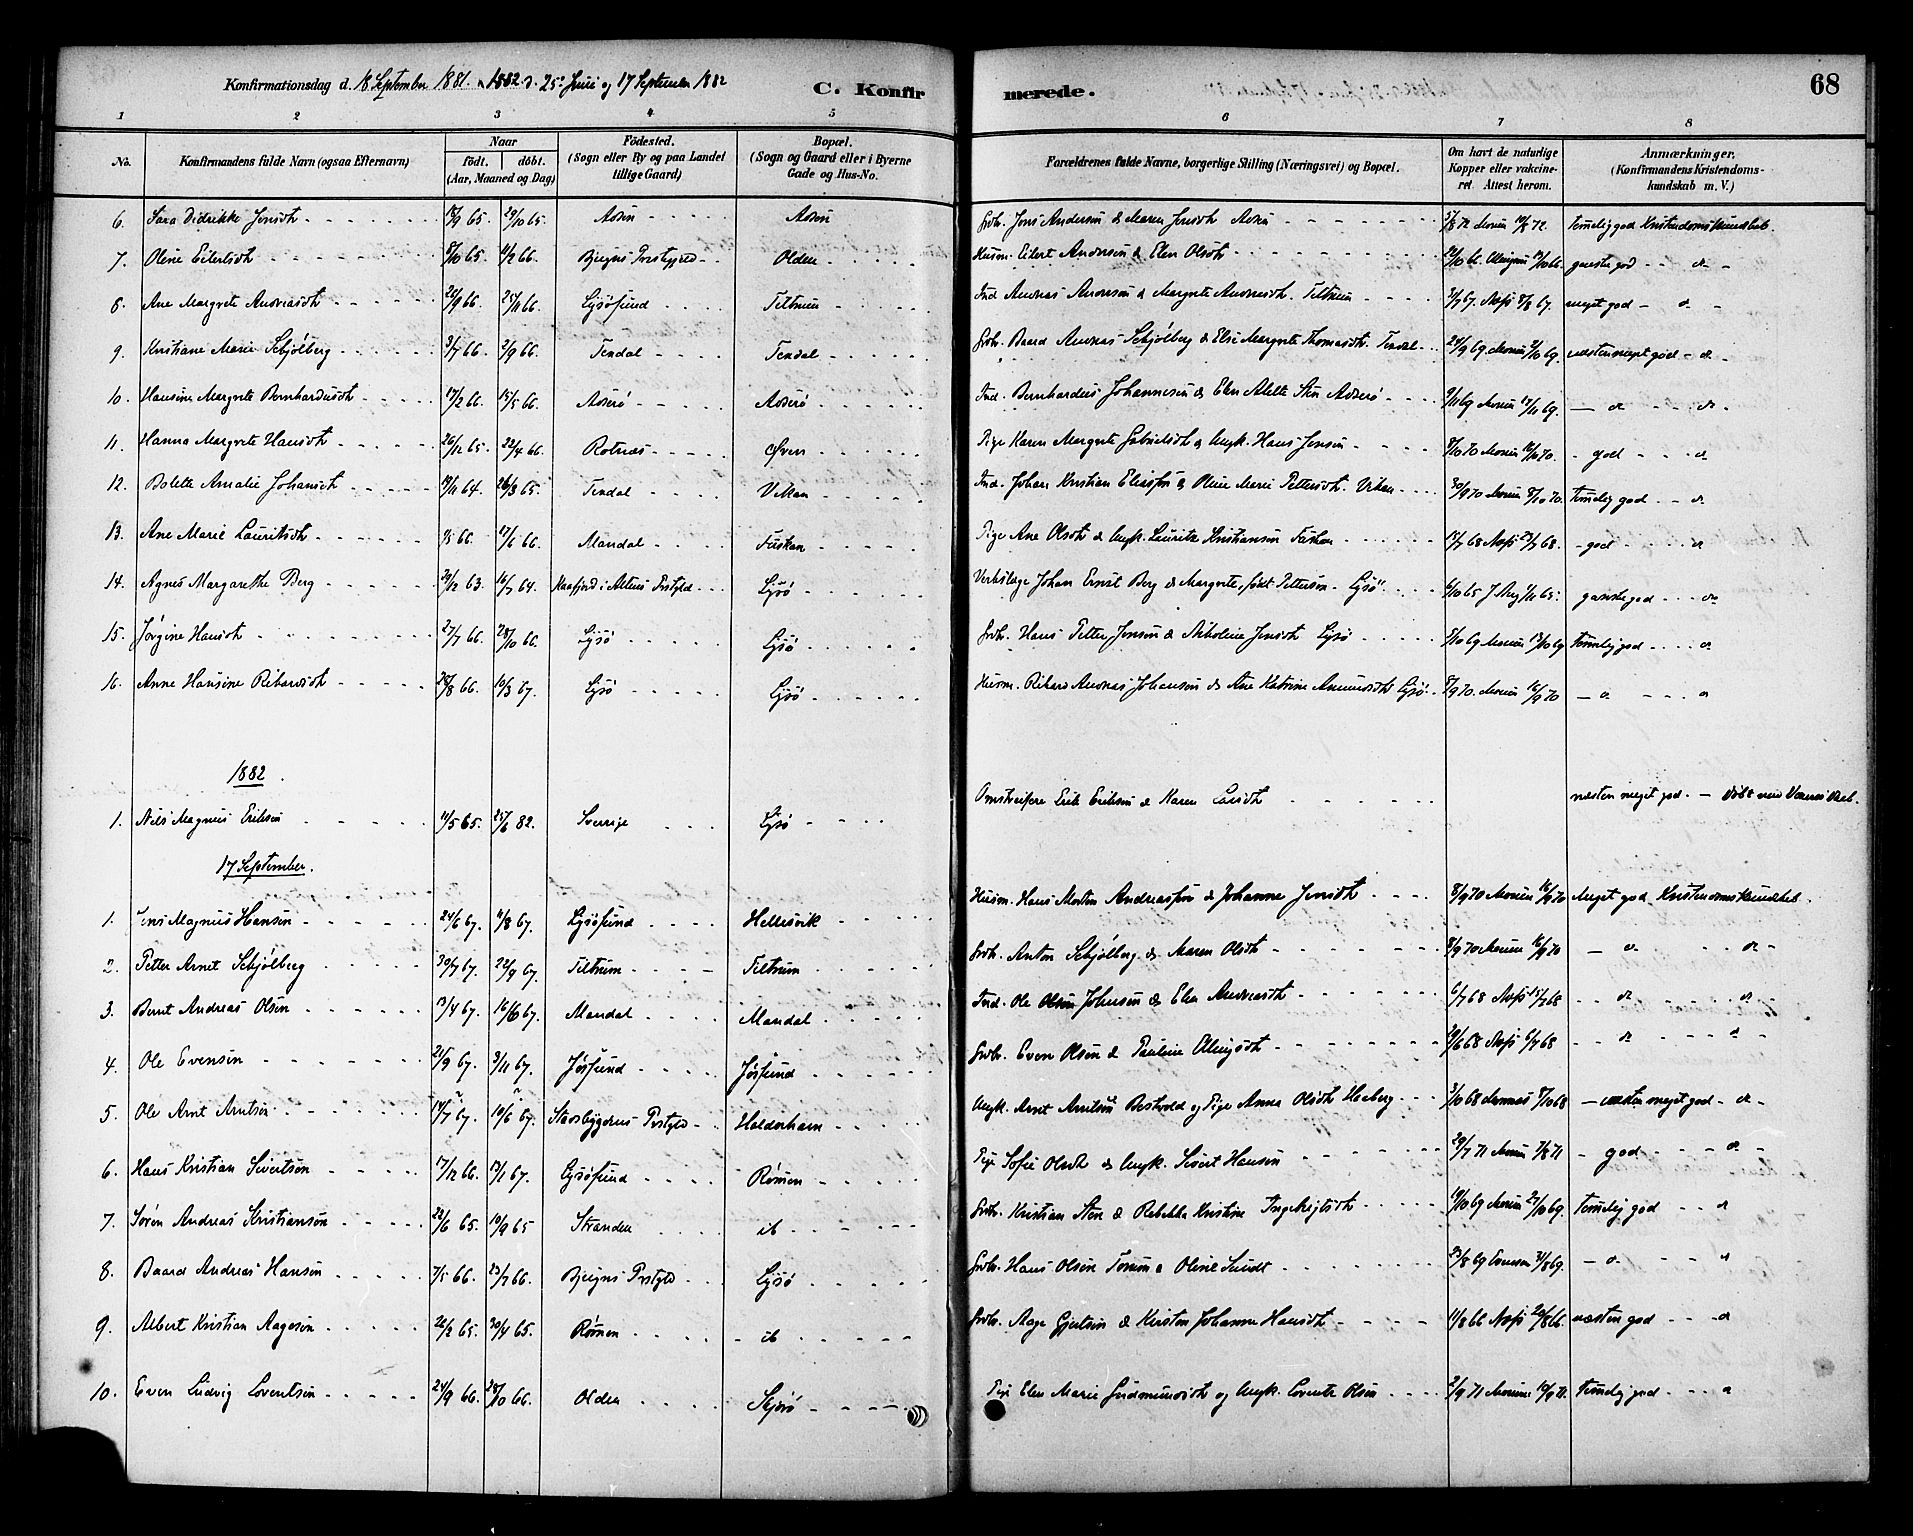 Konfirmationsdag d. 18 September 1881. 1882 d. 25. Juni og 17 September 1882
C. Konfirmerede.
68
1 2 3 4 5 6 7 8
No. Konfirmandens fulde Navn (ogsaa Efternavn) Naar födt. döbt. (Aar, Maaned og Dag) Födested. (Sogn eller By og paa Landet tillige Gaard) Bopæl. (Sogn og Gaard eller i Byerne Gade og Hus-No. Forældrenes fulde Navne, borgerlige Stilling (Næringsvei) og Bopæl. Om havt de naturlige Kopper eller vakcineret. Attest herom. Anmærkninger. (Konfirmandens Kristendomskundskab m. V.)
6. Sara Didrikke Jensdt 29/10 65. Aosen Aosen Grdb. Jens Andersen & Maren Jensdt Aosen 10/8 72. Temmelig god Kristendomskundskab.
7. Oline Eilertsdt 8/10 65. 11/2 66. Bjugns Prstgjeld Olden Husm. Eilert Andersen & Elen Olsdt ganske god do
8. Ane Margrete Andreasdt 26/9 66. 25/11 66. Lysøsund Teltrum Ind. Andreas Andersen & Margrete Andreasdt. Teltrum 3/7 67. 8/8 67. meget god do
9. Kristiane Marie Schjølberg 3/7 66. 2/9 66. Tendal Tendal Grdb. Baard Andreas Schjølberg & Else Margrete Thomasdt. Tendal 24/9 69 2/10 69. næsten meget god do
10. Hansine Margrete Bernhardusdt 17/2 66. 15/5 66. Ind. Bernhardus Johannesen & Elen Aletta Sten 9/11 69 17/11 69. do do
11. Hanna Margrete Hansdt 26/12 65. 22/4 66. Rotnæs Øven Pige Karen Margrete Gabrielsdt & Ungk. Hans Jensen 8/10 70 16/10 70. god do
12. Bolette Amalie Johansdt 19/11 64. 26/3 65. Tendal Vikan Ind. Johan Kristian Eliassen & Oline Marie Pettersdt. Vikan 30/9 70 8/10 70. Temmelig god do
13. Ane Marie Lauritsdt 66. 17/6 66. Mandal Fuskan Pige Ane Olsdt & Ungk. Lauritz Kristiansen Fuskan 17/7 68 25/7 68. god do
14. Agnes Margarethe Berg 29/12 63. 16/7 64. Kaafjord i Altens Prstgjld Lysø Johan Ernst Berg & Margrete, født Petterson Lysø 6/10 65 1/11 65. ganske god do
15. Jørgine Hansdt 27/7 66. 28/10 66. Lysø Lysø Grdb. Hans Petter Jensen & Nikoline Jensdt Lysø 5/10 69 13/10 69 Temmelig god do
16. Anne Hansine Rikardsdt 28/8 66. 10/3 67. Lysø Lysø Husm. Rikard Andreas Johansen & Ane Katrine Amundsdt Lysø 8/9 70. 16/9 70 do do
1882.
1. Nils Magnus Eriksen 11/5 65. 25/6 82. Sverrige Lysø Omstreifere Erik Eriksen & Karen Larsdt næsten meget god. Døbt ved
17 September.
1. Jens Magnus Hansen 24/6 67. 11/8 67. Lysøsund Hellesvik Husm. Hans Morten Andreassen & Johanne Jensdt 8/9 70 16/9 70 Meget god Kristendomskundskab.
2. Petter Arnet Schjølberg 30/7 67. 22/9 67. Teltrum Teltrum Grdb. Anton Schjølberg & Maren Olsdt 8/9 70 16/9 70 do do
3. Bernt Andreas Olsen 13/4 67. 16/6 67. Mandal Mandal Ind. Ole Olsen Johnsen & Elen Andreasdt 6/7 68 15/7 68 do do
4. Ole Evensen 21/9 67. 3/11 67. Jøssund Jøssund Grdb. Even Olsen & Pauline Ellingsdt 29/6 68 6/7 68 do do
5. Ole Arnt Arntsen 14/7 67. 10/6 67. Stadsbygdens Prstgld Holderhavn Ungk. Arnt Arntsen Bostvold og Pige Anna Olsdt Heeberg 3/10 68 8/10 68 næsten meget god do
6. Hans Kristian Sivertsen 17/12 66. 13/1 67. Lysøsund Rømen Pige Sofie Olsdt & Ungk. Sivert Hansen 29/7 71 7/8 71 god do
7. Søren Andreas Kristiansen 22/6 65. 10/9 65 Stranden ib Grdb. Kristian Sten & Rebekka Kristine Ingebrigtsdt 19/10 69 27/10 69. Temmelig god do
8. Baard Andreas Hansen 7/5 66. 23/7 66. Bjugns Prstgld Lysø Grdb. Hans Olsen & Oline 23/8 69 31/8 69. do do
9. Albert Kristian Aagesen 26/2 65. 30/4 65. Rømen ib Grdb. Aage Gjertsen & Kirsten Johanna Hansdt 11/8 66 20/8 66. næsten god do
10. Even Ludvig Lorentsen 24/9 66. 28/10 66. Olden Pige Elen Marie Gudmundsdt og Ungk. Lorents Olsen 2/9 71 10/9 71. Temmelig god do